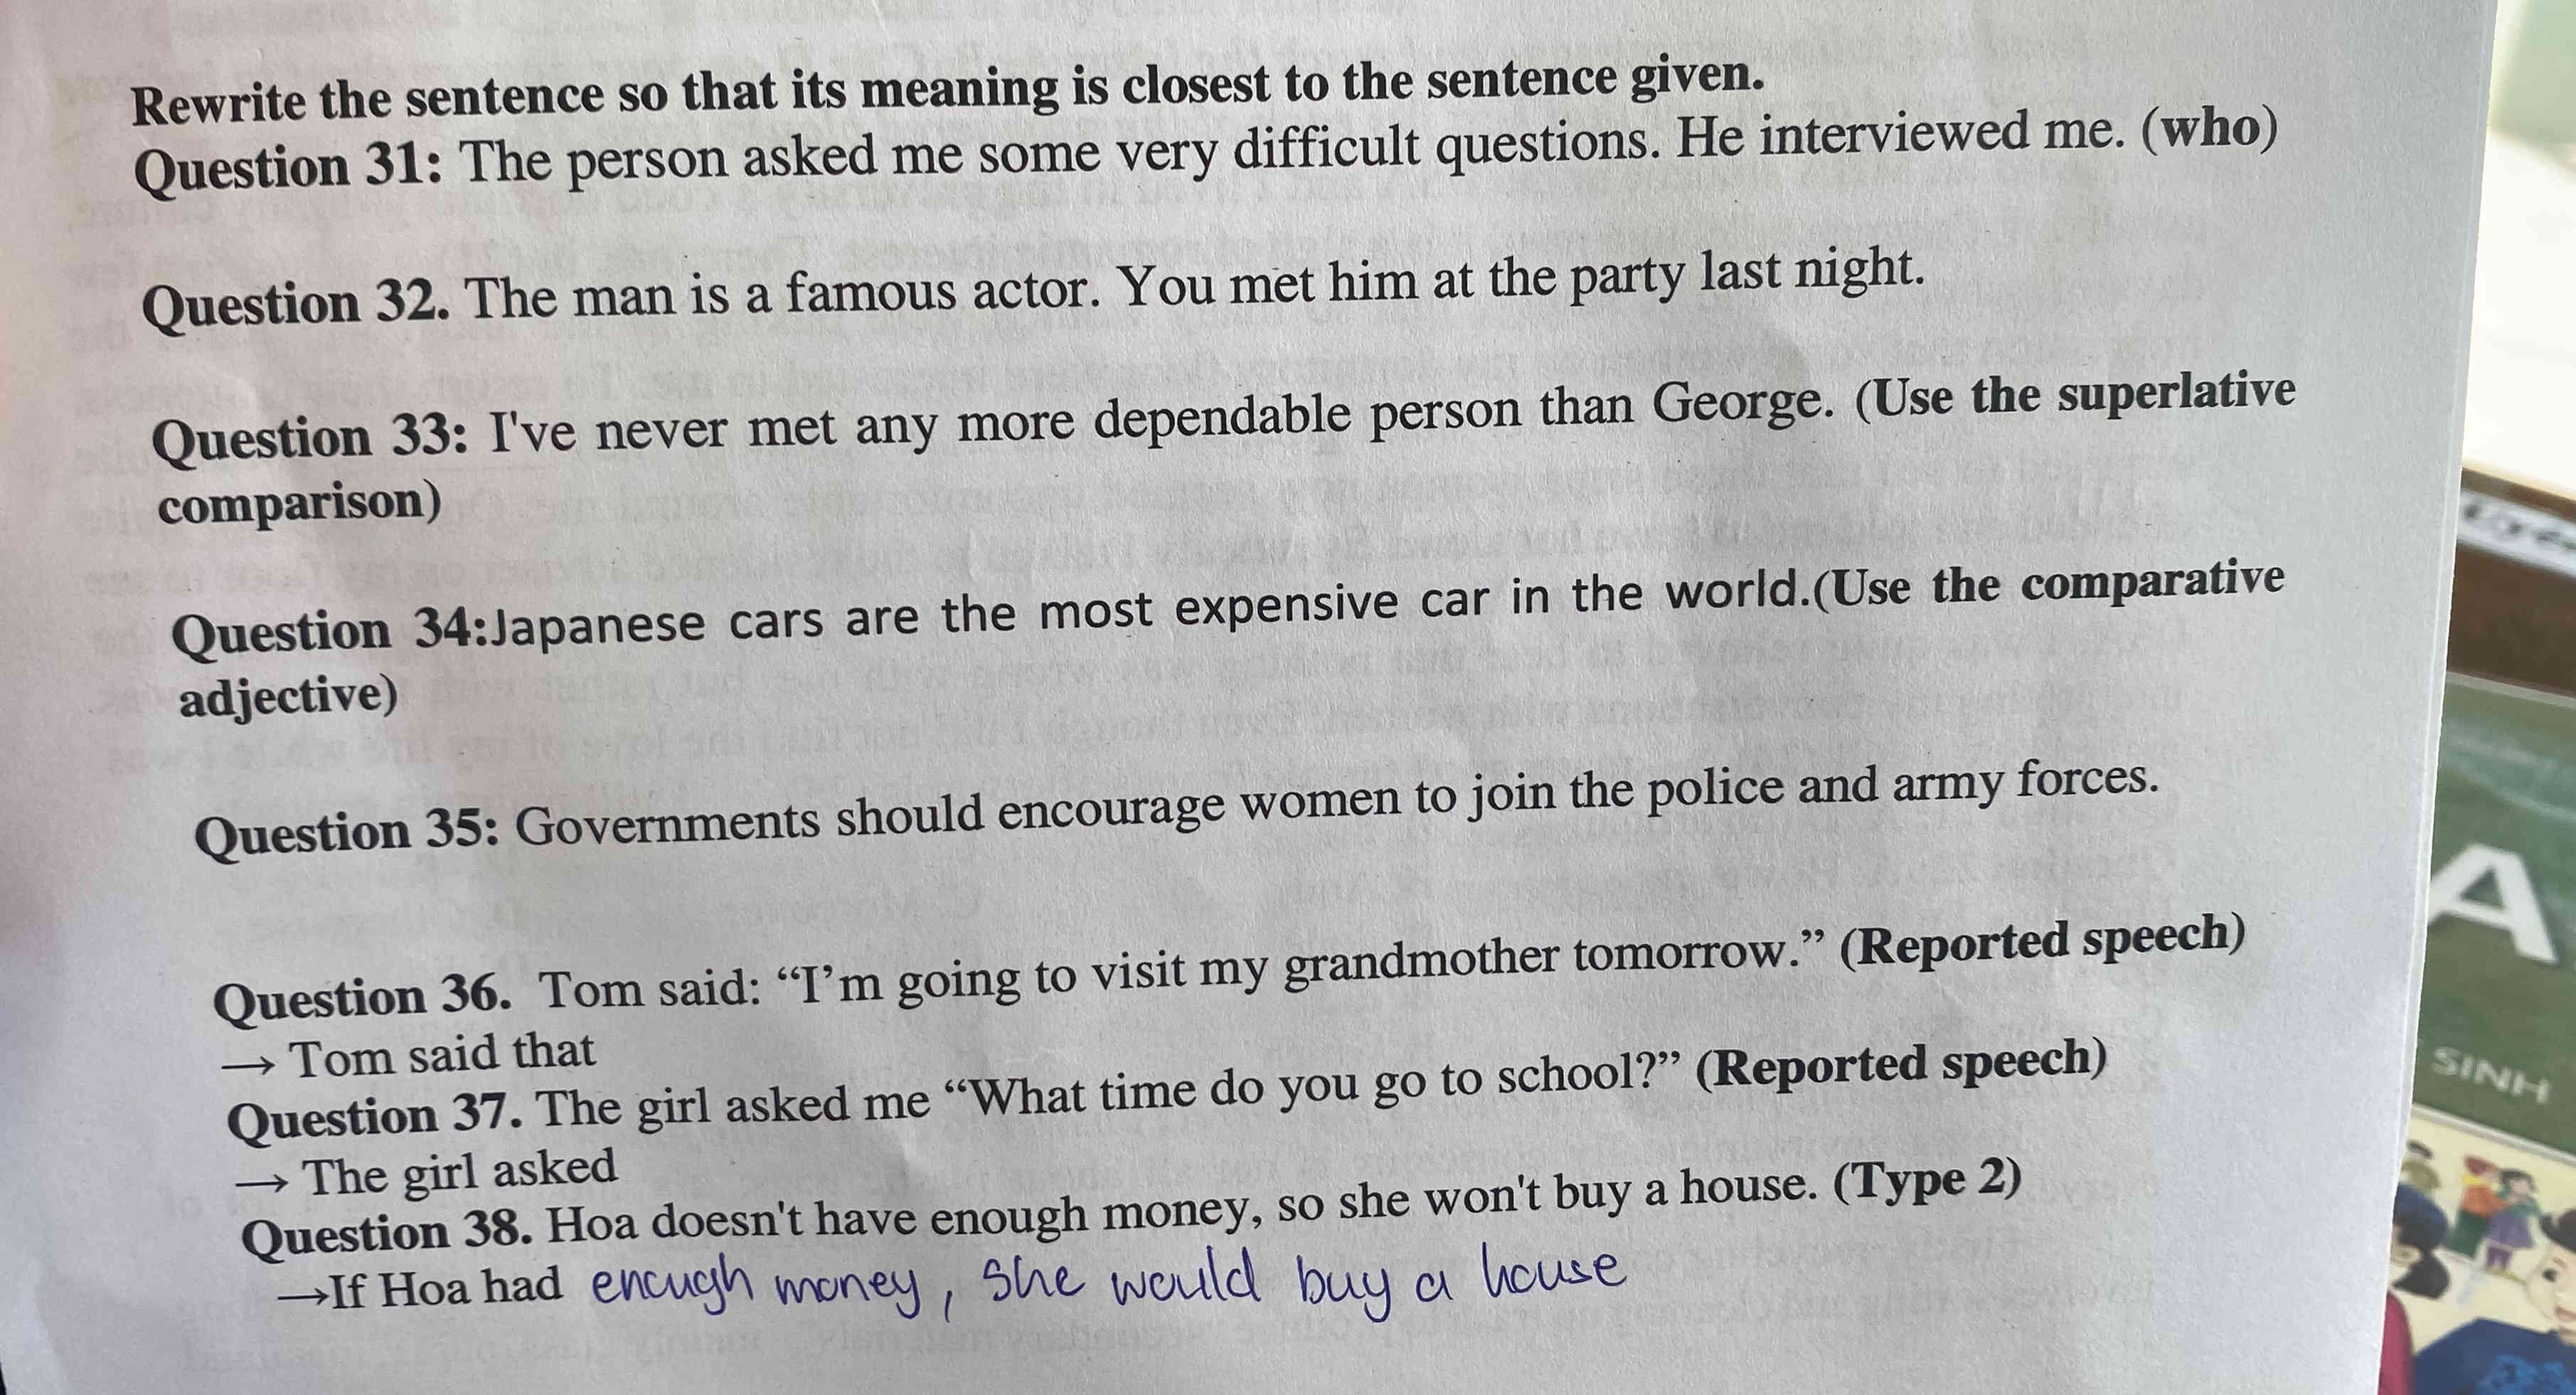 Rewrite the sentence so that its meaning is closest to the sentence given.
Question 31: The person asked me some very difficult questions. He interviewed me. (who)
Question 32. The man is a famous actor. You met him at the party last night.
Question 33: I've never met any more dependable person than George. (Use the superlative
comparison)
Question 34:Japanese cars are the most expensive car in the world.(Use the comparative
adjective)
Question 35: Governments should encourage women to join the police and army forces.
Question 36. Tom said: “I’m going to visit my grandmother tomorrow.” (Reported speech)
→ Tom said that
Question 37. The girl asked me “What time do you go to school?” (Reported speech)
→ The girl asked
Question 38. Hoa doesn't have enough money, so she won't buy a house. (Type 2)
→If Hoa had enough money, she would buy a house
A
SINH